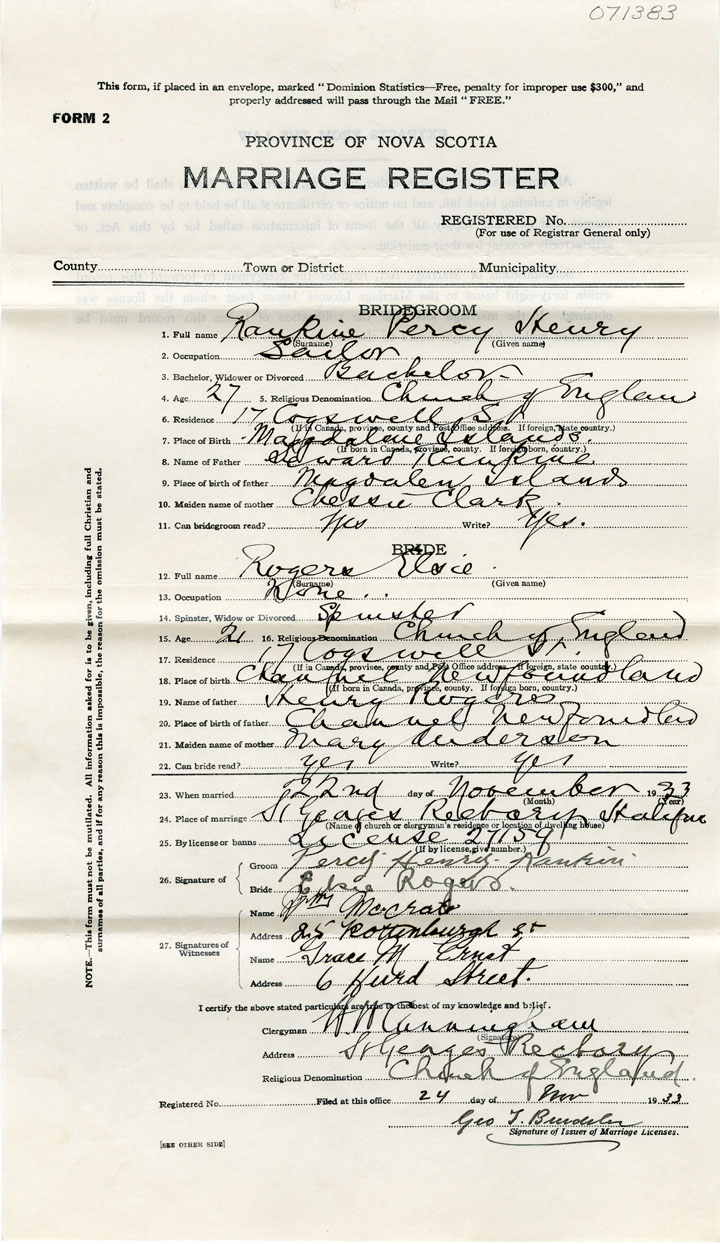 071383
This form, if placed in an envelope, marked "Dominion Statistics—Free, penalty for improper use $300," and
properly addressed will pass through the Mail "FREE."
FORM 2
PROVINCE OF NOVA SCOTIA
MARRIAGE REGISTER
REGISTERED No.
(For use of Registrar General only)
County Town or District Municipality
BRIDEGROOM
1. Full name Rankine Percy Henry
(Surname) (Given name)
2. Occupation Sailor
3. Bachelor, Widower or Divorced Bachelor
4. Age 27 5. Religious Denomination Church of England
6. Residence 17 Cogswell St
(If in Canada, province, county and Post Office address. If foreign, state country.)
7. Place of Birth Magdalene Islands.
(If born in Canada, province, county. If foreign born, country.)
8. Name of Father Edward Rankine
9. Place of birth of father Magdalen Islands
10. Maiden name of mother Chessie Clark
11. Can bridegroom read? Yes Write? Yes.
BRIDE
12. Full name Rogers Elsie
(Surname) (Given name)
13. Occupation None
14. Spinster, Widow or Divorced Spinster
15. Age 21 16. Religious Denomination Church of England
17. Residence 17 Cogswell St.
(If in Canada, province, county and Post Office address. If foreign, state country.)
18. Place of birth Channel Newfoundland
(If born in Canada, province, county. If foreign born, country.)
19. Name of father Henry Rogers
20. Place of birth of father Channel Newfoundland
21. Maiden name of mother Mary Anderson
22. Can bride read? yes Write? yes
23. When married 22nd day of November 1933
(Month) (Year)
24. Place of marriage St Georges Rectory Halifax
(Name of church or clergyman's residence or location of dwelling house)
25. By license or banns License 27154
(If by license, give number.)
26. Signature of
Groom Percy Henry Rankin
Bride Elsie Rogers.
27. Signatures of Witnesses
Name Wm McCrate
Address 25 Rottenburgh St
Name Grace M Ernst
Address 6 Hurd Street.
I certify the above stated particulars are true to the best of my knowledge and belief.
Clergyman H W Cunningham
(Signature)
Address St Georges Rectory
Religious Denomination Church of England.
Registered No. Filed at this office 24 day of Nov 1933
Geo T.
Signature of Issuer of Marriage Licenses.
[SEE OTHER SIDE]
NOTE.—This form must not be mutilated. All information asked for is to be given, including full Christian and
surnames of all parties, and if for any reason this is impossible, the reason for the omission must be stated.